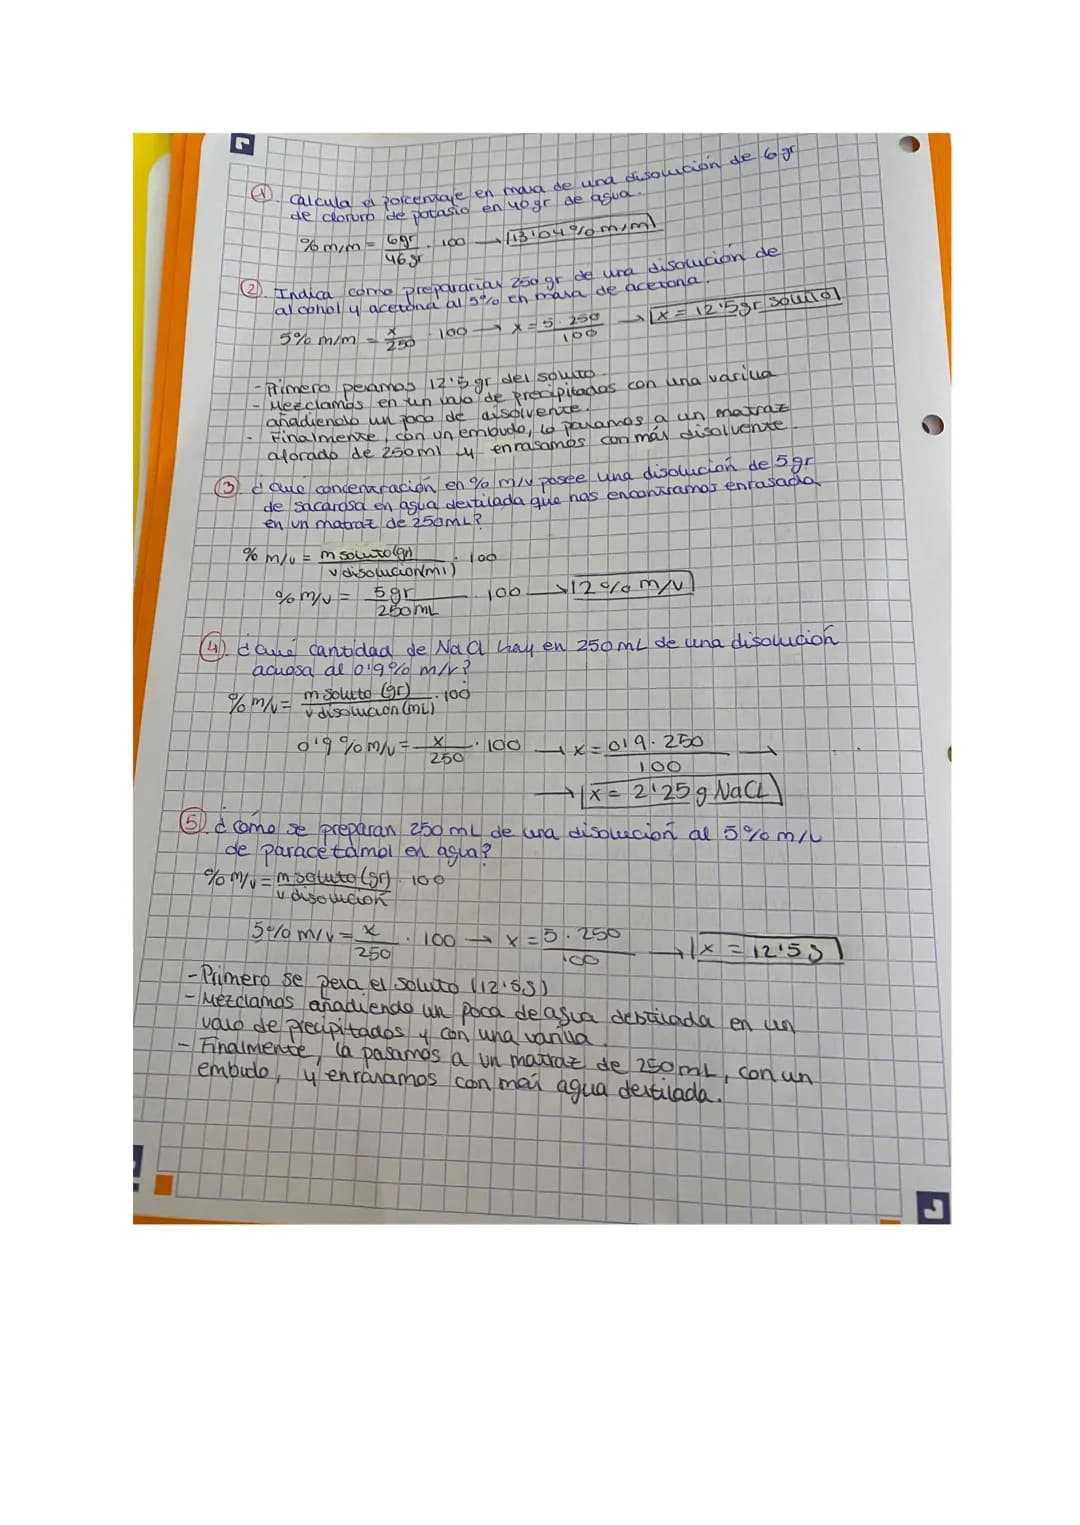 ① . Calcula el porcentaje en masa de una disolución de 6 gr
de cloruro de potasio en 40 gr de agua.
% m/m = 6gr / 46gr . 100 → 13'04 % m/m
②. Indica como prepararías 250 gr de una disolución de
alcohol y acetona al 5% en masa de acetona.
5% m/m = x / 250 . 100 → x = 5 . 250 / 100 → x = 12'5gr soluto
- Primero pesamos 12'5 gr del soluto
- Mezclamos en un vaso de precipitados con una varilla
añadiendo un poco de disolvente.
- Finalmente, con un embudo, lo pasamos a un matraz
aforado de 250ml y enrasamos con más disolvente.
③ ¿Qué concentración en % m/v posee una disolución de 5gr
de sacarosa en agua destilada que nos encontramos enrasada
en un matraz de 250mL?
% m/v = m soluto (gr) / v disolución (ml) . 100
% m/v = 5gr / 250mL . 100 → 2% m/v
④. ¿Qué cantidad de NaCl hay en 250mL de una disolución
acuosa al 0'9% m/v?
% m/v = m soluto (gr) / v disolución (mL) . 100
0'9 % m/v = x / 250 . 100 → x = 0'9 . 250 / 100 →
→ x = 2'25 g NaCl
⑤. ¿Cómo se preparan 250 mL de una disolución al 5% m/v
de paracetamol en agua?
% m/v = m soluto (gr) / v disolución . 100
5% m/v = x / 250 . 100 → x = 5 . 250 / 100 → x = 12'5g
- Primero se pesa el soluto (12'5g)
- Mezclamos añadiendo un poca de agua destilada en un
vaso de precipitados y con una varilla.
- Finalmente, la pasamos a un matraz de 250mL, con un
embudo, y enrasamos con más agua destilada.